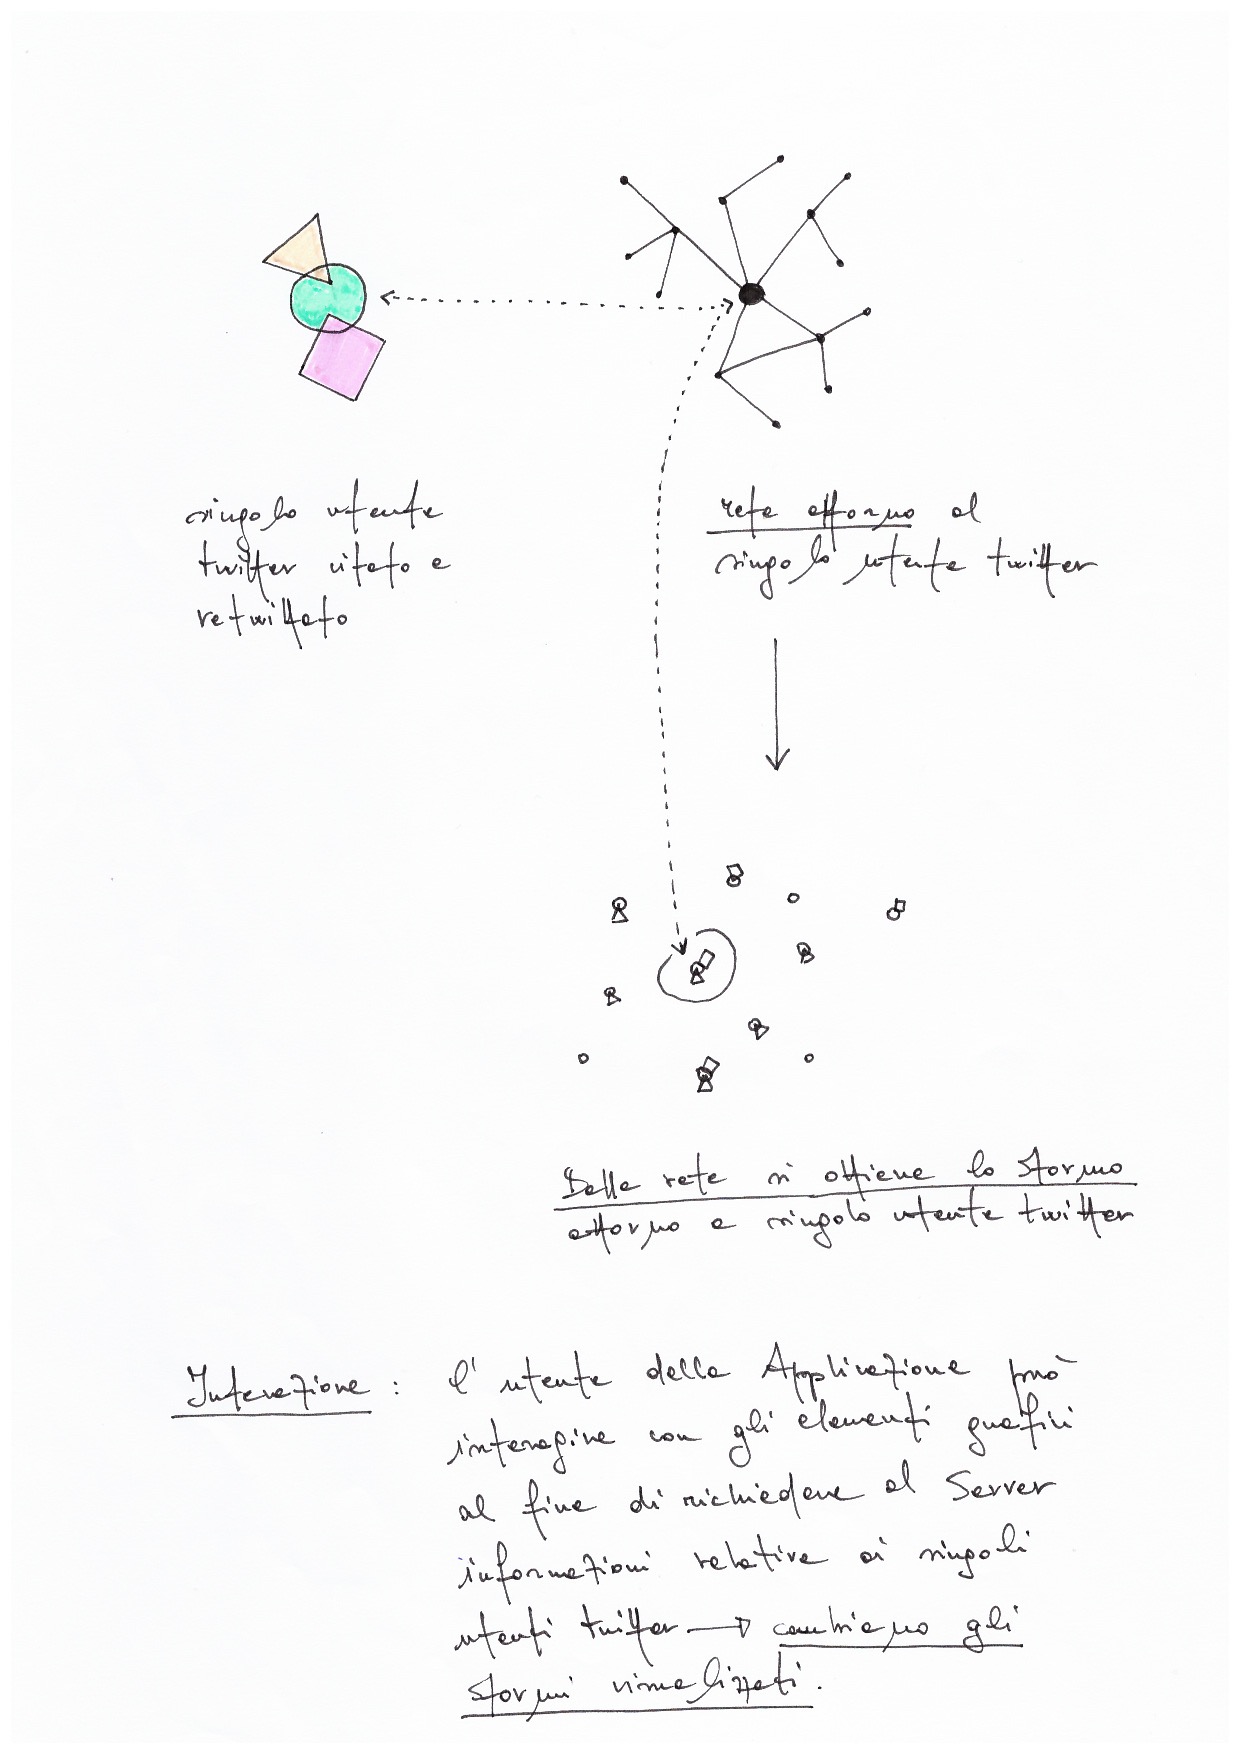 singolo utente
twitter citato e
retwittato
rete attorno al
singolo utente twitter
Dalla rete si ottiene lo stormo
attorno a singolo utente twitter
Interazione : l'utente della Applicazione può
interagire con gli elementi grafici
al fine di richiedere al Server
informazioni relative ai singoli
utenti twitter → cambiano gli
stormi visualizzati.